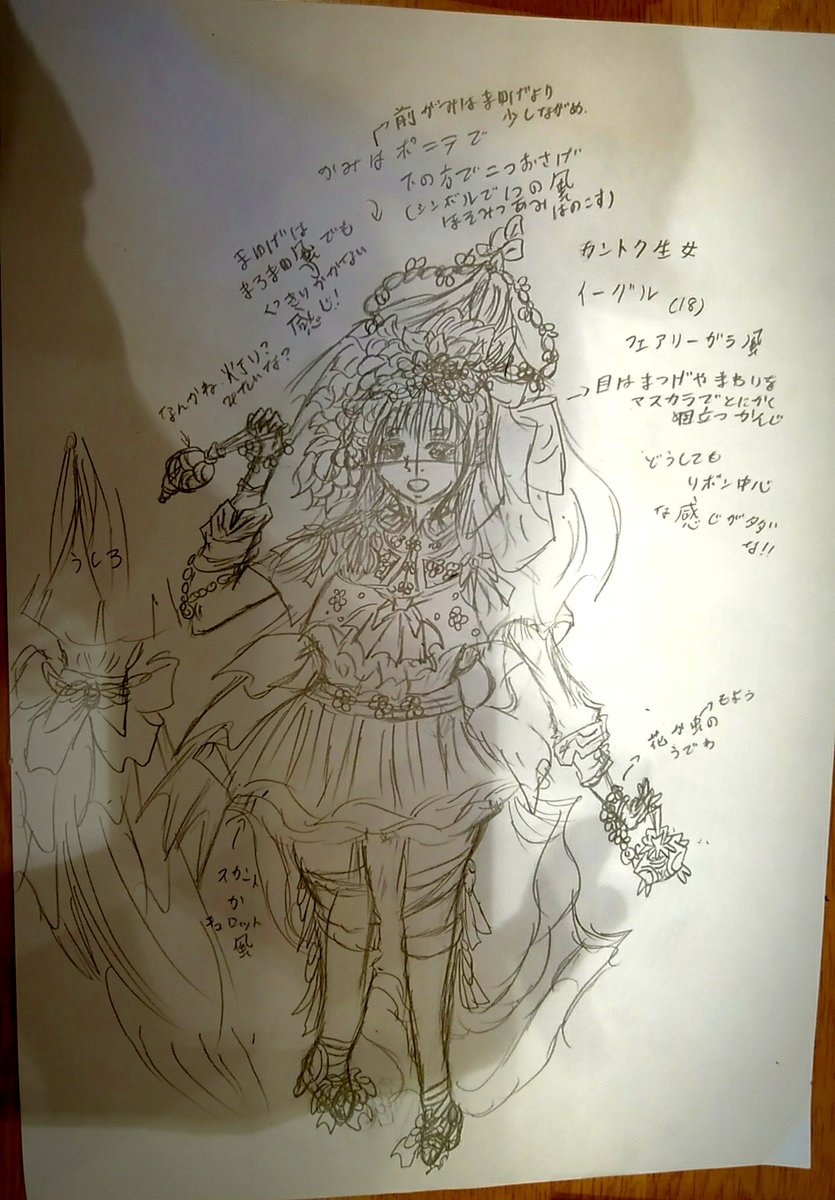 前がみはまゆげより
少しながめ.
かみはポニテで
下の方で二つおさげ
(シンボルで1つの風
ほそみつあみはのこす)
まゆげは
まろまゆ風でも
くっきりかかない
感じ!
カントク生女
イーグル(18)
フェアリーガラ風
なんかね 灯り?
みたいな?
目はまつげやまわりを
マスカラでとにかく
目立つかんじ
どうしても
リボン中心
な感じがタダいな!!
うしろ
もよう
花か虫の
うでわ
スカート
か
キュロット
風